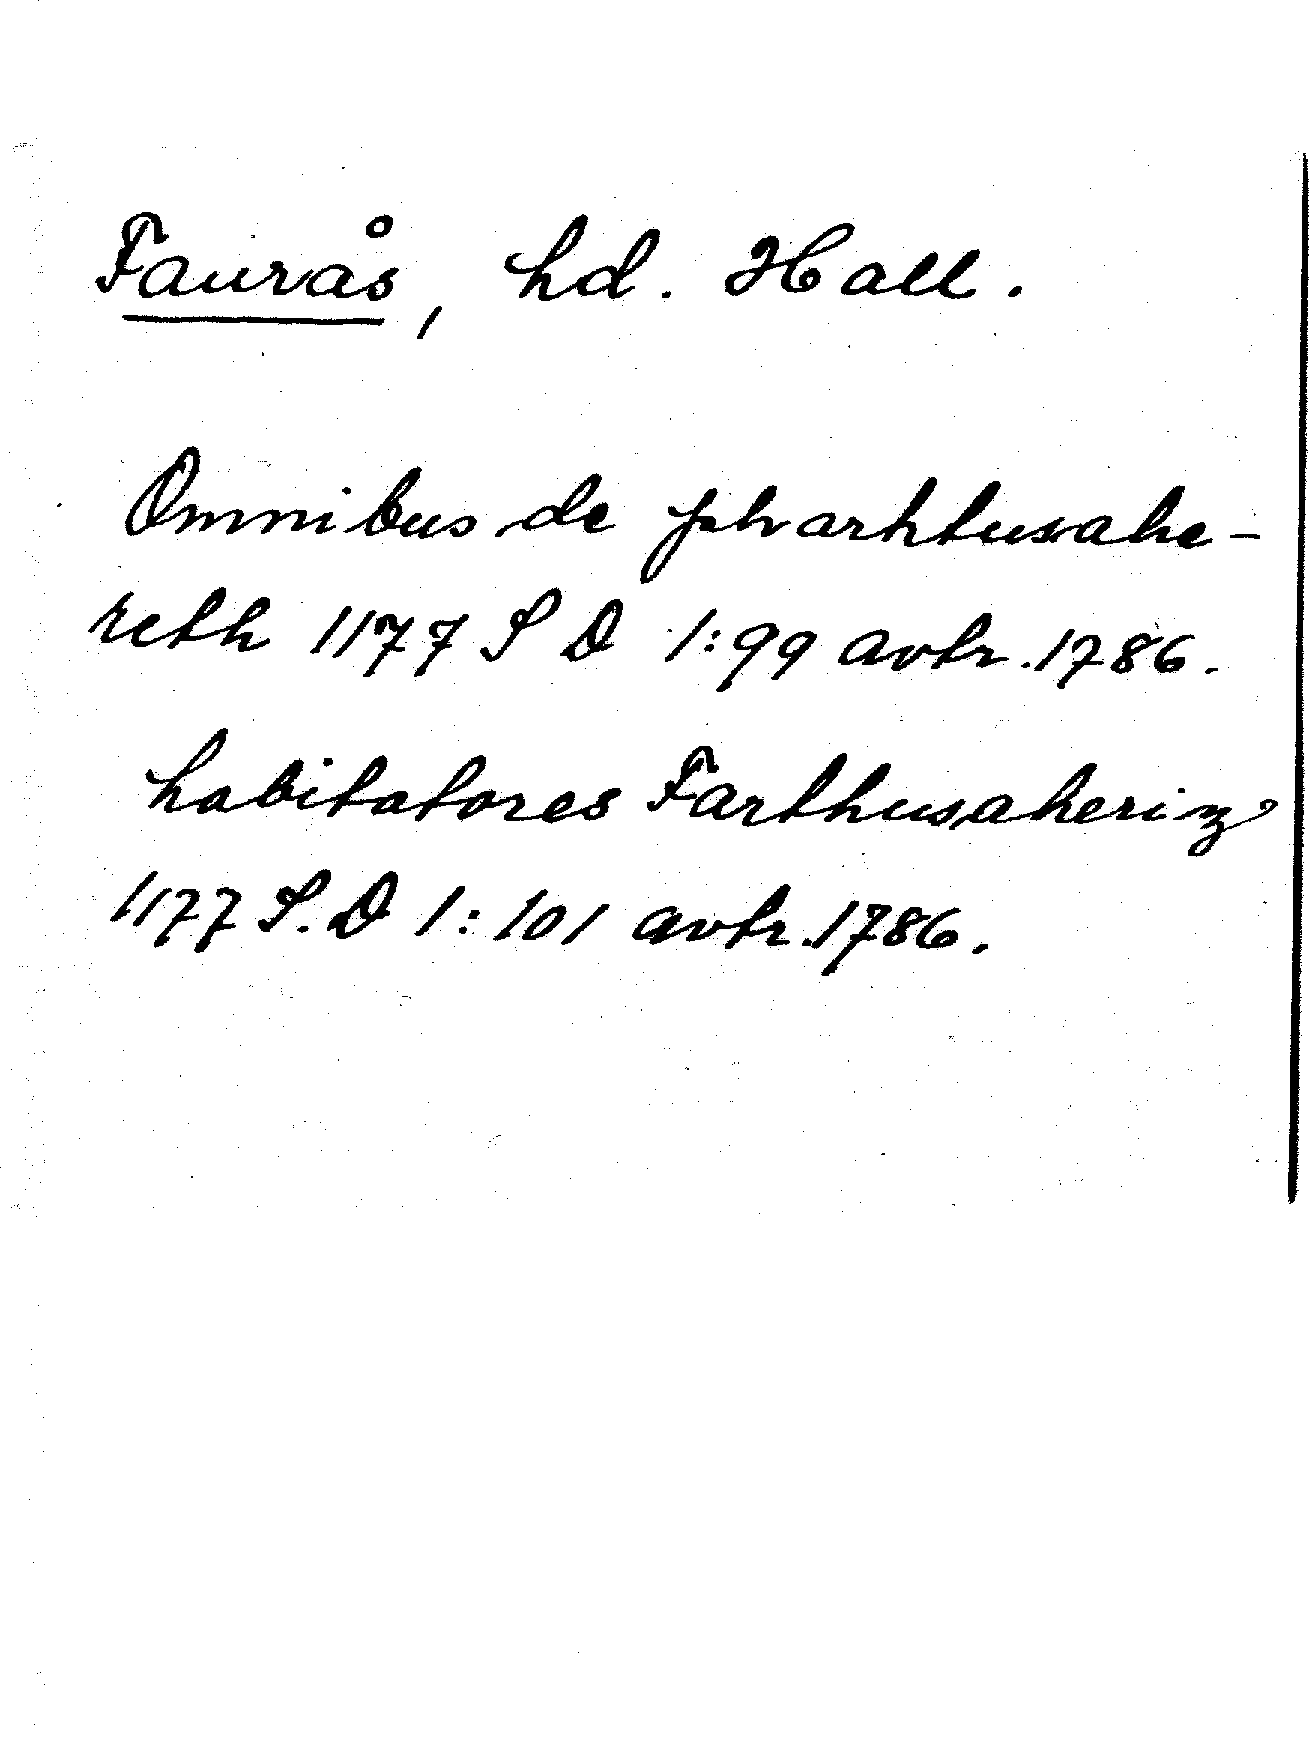 Faurås, hd. Hall.
Omnibus de pharhtusahe-
reth 1177 S D 1:99 avtr. 1786.
habitatores Farthusaheriz
1177 S. D 1:101 avtr. 1786.